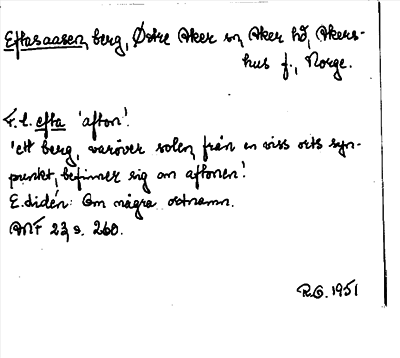 Eftasaasen, berg, Østre Aker sn, Aker hd, Akers-
hus f., Norge.
F. l. efta 'afton'.
'ett berg, varöver solen, från en viss orts syn-
punkt, befinner sig om aftonen'.
E. Lidén: Om några ortnamn.
ANF 23, s. 260.
R.O. 1951